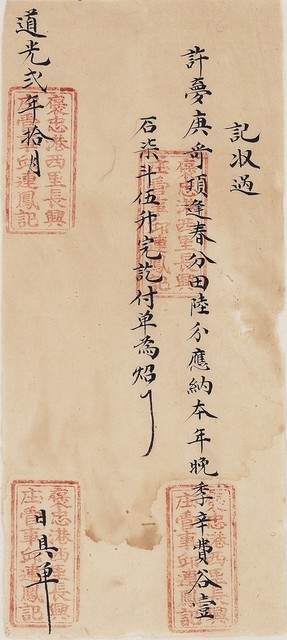 記収過
許夢庚哥頂逢春分田陸分應納本年晚季辛費谷壹
石柒斗伍升完訖付单為炤
道光弍年拾月 日具单
褒忠港西里長興
庄管事邱連鳳記
褒忠港西里長興
庄管事邱連鳳記
褒忠港西里長興
庄管事邱連鳳記
褒忠港西里長興
庄管事邱連鳳記